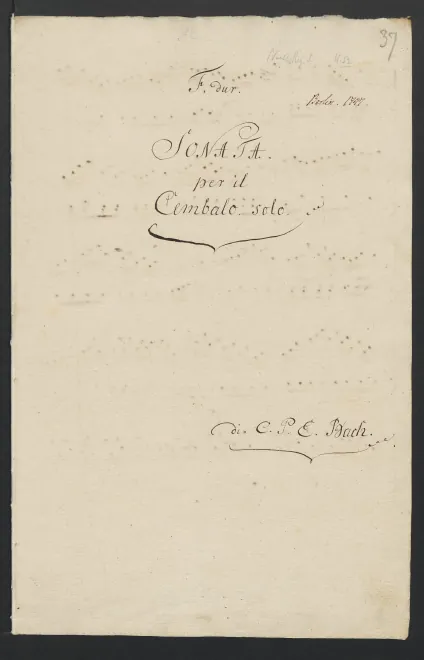 37
F. dur.
Berlin.
SONATA.
per il
Cembalo solo.
di C. P. E. Bach.